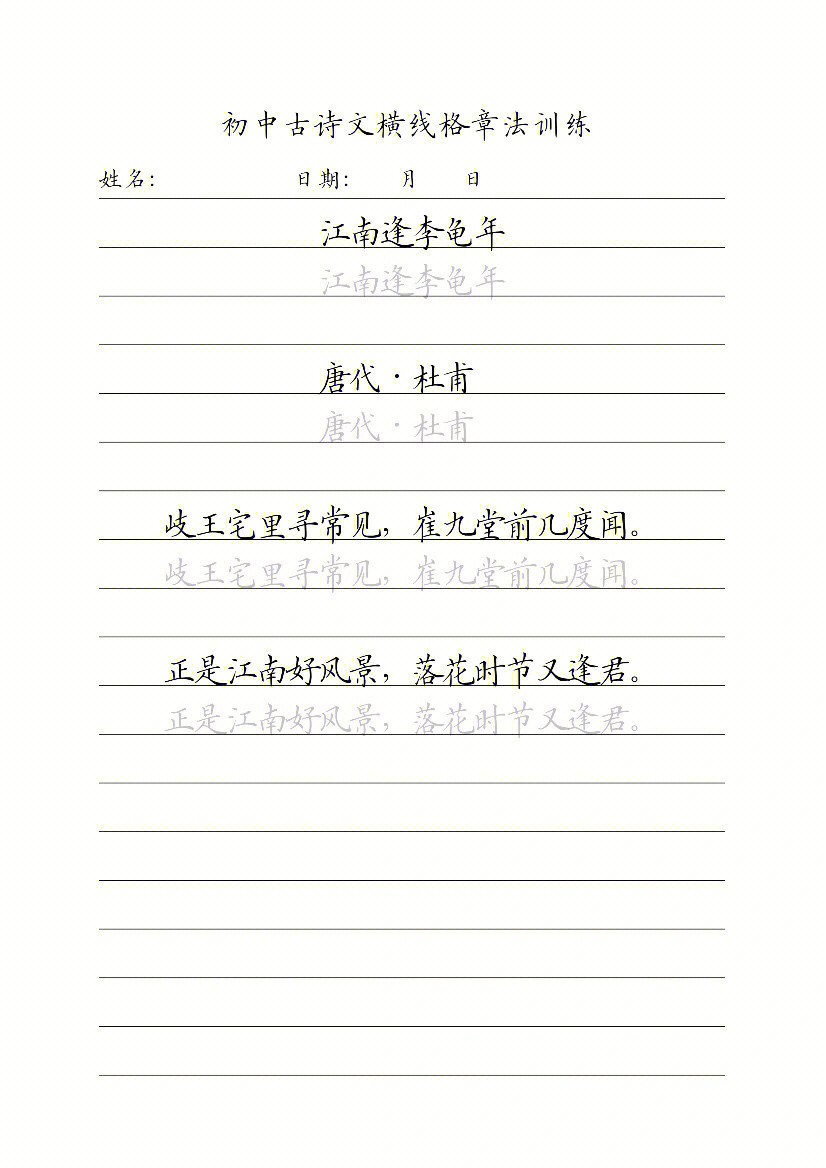 初中古诗文横线格章法训练
姓名: 日期: 月 日
江南逢李龟年
江南逢李龟年
唐代·杜甫
唐代·杜甫
歧王宅里寻常见，崔九堂前几度闻。
歧王宅里寻常见，崔九堂前几度闻。
正是江南好风景，落花时节又逢君。
正是江南好风景，落花时节又逢君。